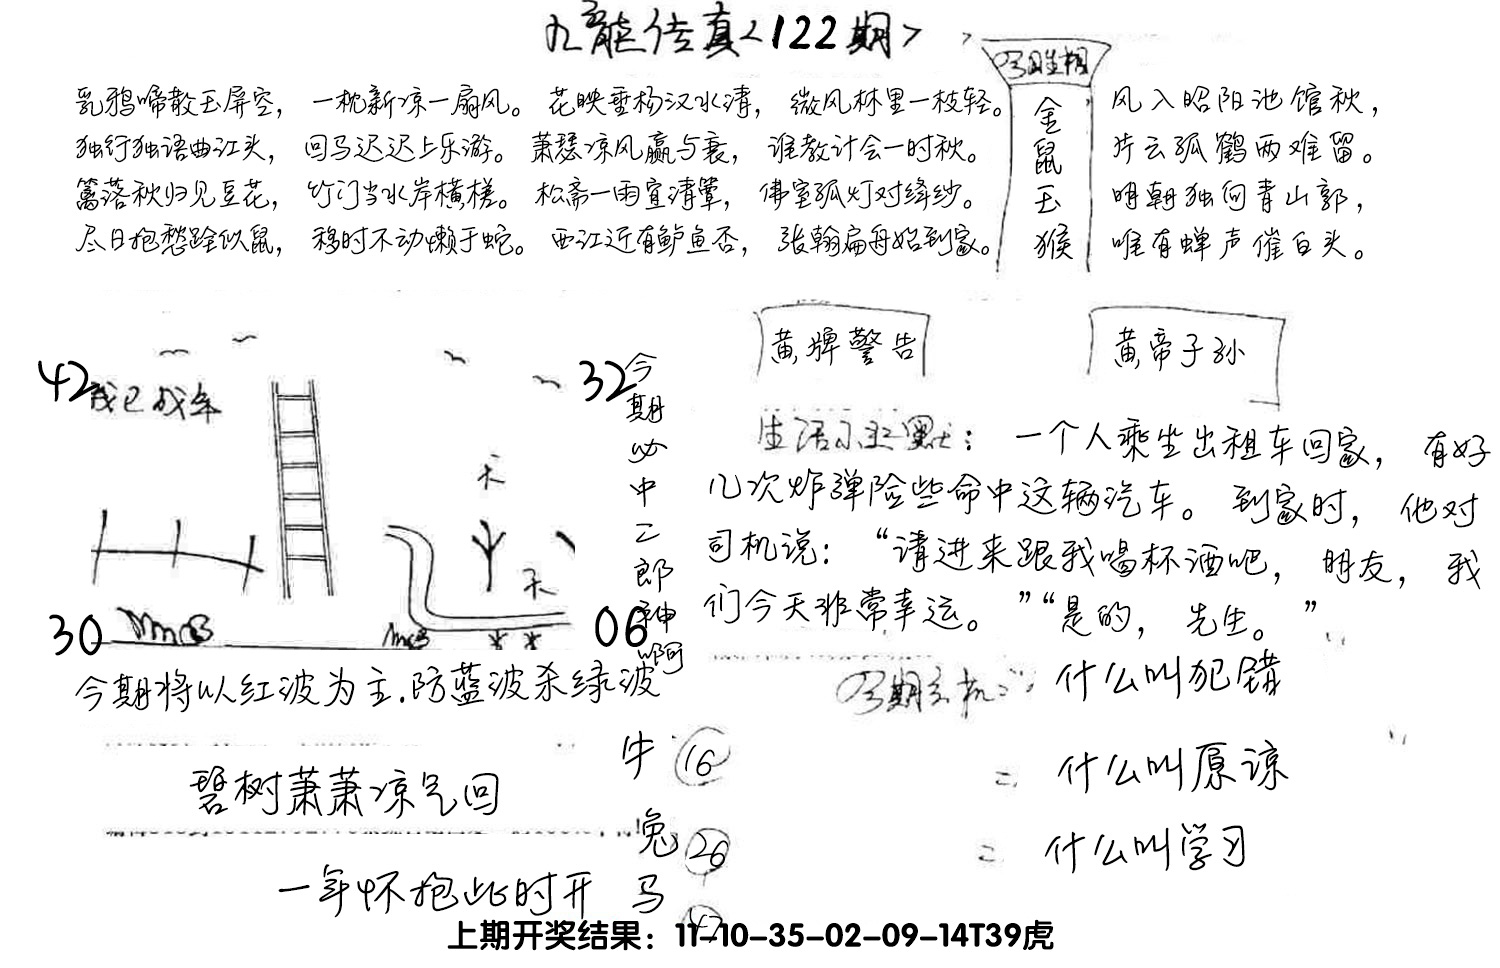 九龙传真<122期>
乳鸦啼散玉屏空，一枕新凉一扇风。花映垂杨汉水清，微风林里一枝轻。
独行独语曲江头，回马迟迟上乐游。萧瑟凉风赢与衰，谁教计会一时秋。
篱落秋归见豆花，竹门当水岸横槎。松斋一雨宜清簟，佛室孤灯对绛纱。
尽日抱愁跧似鼠，移时不动懒于蛇。西江近有鲈鱼否，张翰扁舟始到家。
金
鼠
玉
猴
风入昭阳池馆秋，
片云孤鹤两难留。
明朝独向青山郭，
唯有蝉声催白头。
42
我已成年
32
天
天
30
06
今期必中二郎神啊
今期将以红波为主.防蓝波杀绿波
黄牌警告
黄帝子孙
生活小幽默：一个人乘坐出租车回家，有好
几次炸弹险些命中这辆汽车。到家时，他对
司机说：“请进来跟我喝杯酒吧，朋友，我
们今天非常幸运。”“是的，先生。”
今期玄机二：什么叫犯错
= 什么叫原谅
= 什么叫学习
碧树萧萧凉气回
一年怀抱此时开
牛 16
兔 26
马
上期开奖结果：11-10-35-02-09-14T39虎